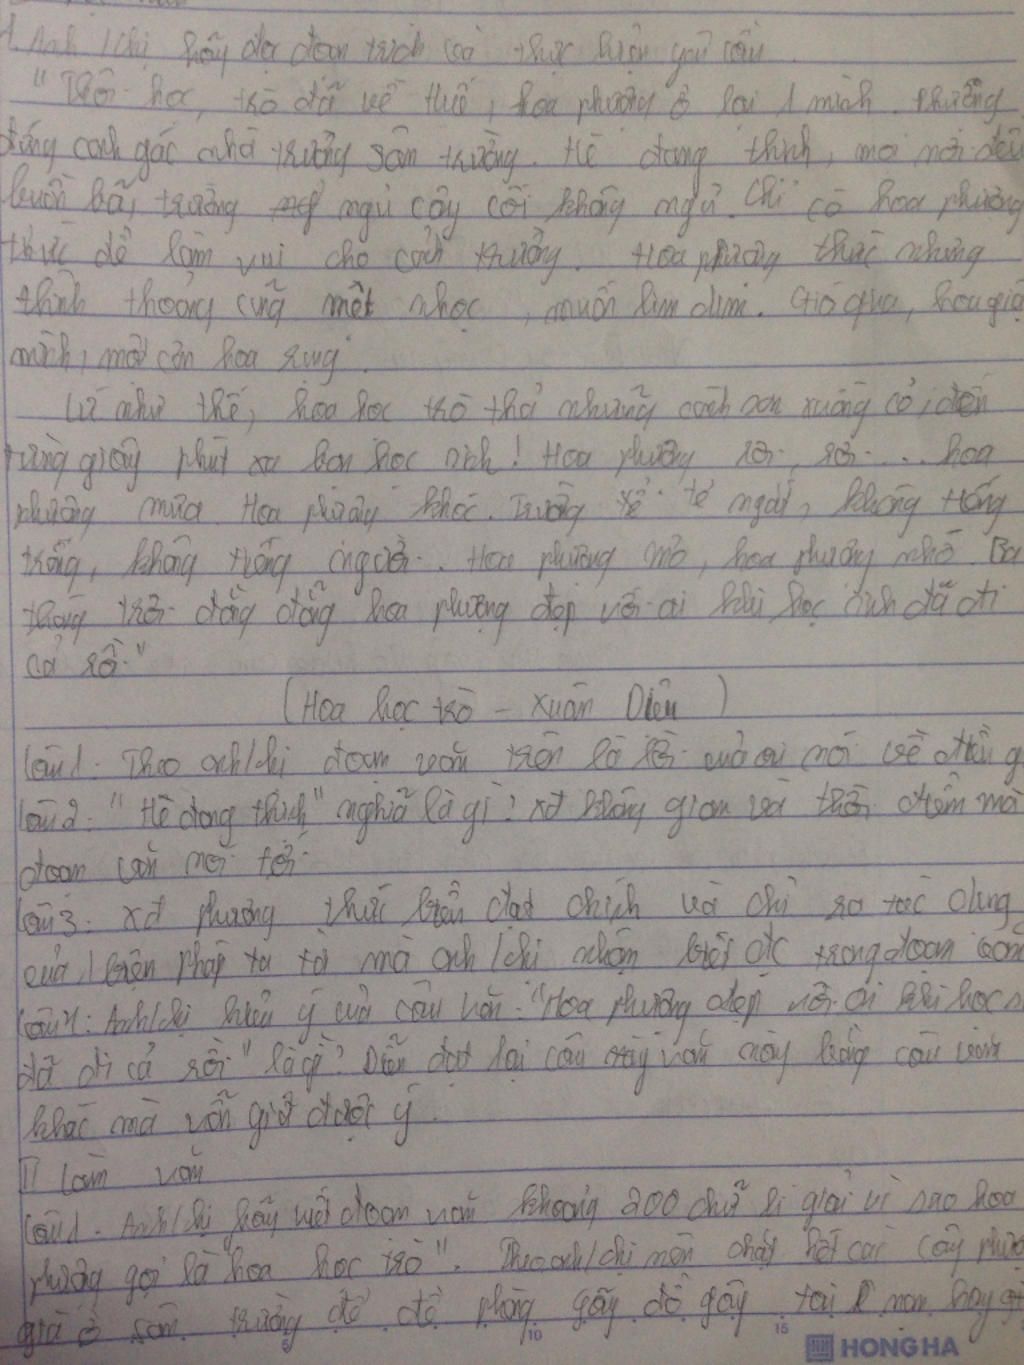 1. Anh/chị hãy đọc đoạn trích và thực hiện yêu cầu
"Thôi học, trò đã về thuê, hoa phượng ở lại 1 mình. Phượng
đứng canh gác nhà trường sân trường. Hè đang thịnh, mọi nơi đều
buồn bã, trường ngủ cây cối không ngủ. Chỉ có hoa phượng
thức để làm vui cho cảnh trường. Hoa phượng thức nhưng
thỉnh thoảng cũng mệt nhọc, muốn lim dim. Gió qua, hoa giật
mình, một cơn hoa rụng
Cứ như thế, hoa học trò thả những cánh son xuống cỏ, đếm
từng giây phút xa bạn học sinh! Hoa phượng rơi, rơi... hoa
phượng mưa. Hoa phượng khóc. Trường tẻ ngắt, không tiếng
trống, không tiếng người. Hoa phượng mơ, hoa phượng nhớ. Ba
tháng trời đằng đẵng hoa phượng đẹp với ai khi học sinh đã đi
cả rồi."
(Hoa học trò - Xuân Diệu)
Câu 1. Theo anh/chị đoạn văn trên là lời của ai nói về điều g
Câu 2. "Hè đang thịnh" nghĩa là gì? xđ không gian và thời điểm mà
đoạn văn nói tới.
Câu 3. xđ phương thức biểu đạt chính và chỉ ra tác dụng
của 1 biện pháp tu từ mà anh/chị nhận biết đc trong đoạn văn
Câu 4: Anh/chị hiểu ý của câu văn: "Hoa phượng đẹp với ai khi học s
đã đi cả rồi" là gì? Diễn đạt lại câu văn này bằng câu văn
khác mà vẫn giữ được ý.
II Làm văn
Câu 1. Anh/chị hãy viết đoạn văn khoảng 200 chữ lí giải vì sao hoa
phượng gọi là "hoa học trò". Theo anh/chị nên chặt hết các cây phượ
già ở sân trường để đề phòng gãy đổ gây tai nạn hay
5 10 15
HONG HA